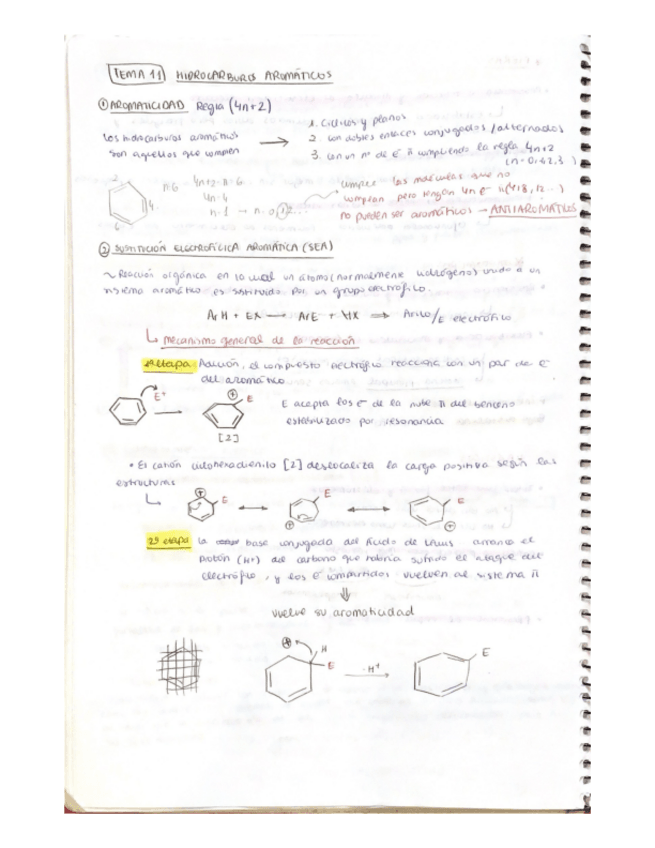 TEMA 11 HIDROCARBUROS AROMÁTICOS
① AROMATICIDAD Regla (4n+2)
Los hidrocarburos aromáticos
son aquellos que cumplen
1. Cíclicos y planos
2. con dobles enlaces conjugados/alternados
3. con un nº de e⁻ π cumpliendo la regla 4n+2
(n=0,1,2,3)
2
4
6
4n+2=6
4n=4
n=1 → n=0,1,2...
las moléculas que no
cumplan pero tengan 4n e⁻ π (4,8,12...)
no pueden ser aromáticos → ANTIAROMÁTICOS
② SUSTITUCIÓN ELECTROFÍLICA AROMÁTICA (SEA)
~ Reacción orgánica en la cual un átomo (normalmente hidrógeno) unido a un
sistema aromático es sustituido por un grupo electrófilo.
ArH + EX → ArE + HX ⇒ Arilo/E electrófilo
↳ mecanismo general de la reacción
1ª etapa: Adición, el compuesto electrófilo reacciona con un par de e⁻
del aromático
E⁺
⊕
E
[2]
E acepta los e⁻ de la nube π del benceno
estabilizado por resonancia
• El catión ciclohexadienilo [2] deslocaliza la carga positiva según las
estructuras
↳
⊕ E ↔ E ⊕ ↔ E ⊕
2ª etapa: la base conjugada del Ácido de Lewis arranca el
protón (H⁺) del carbono que había sufrido el ataque del
electrófilo, y los e⁻ compartidos vuelven al sistema π
⇓
vuelve su aromaticidad
⊕ H
E
-H⁺
E